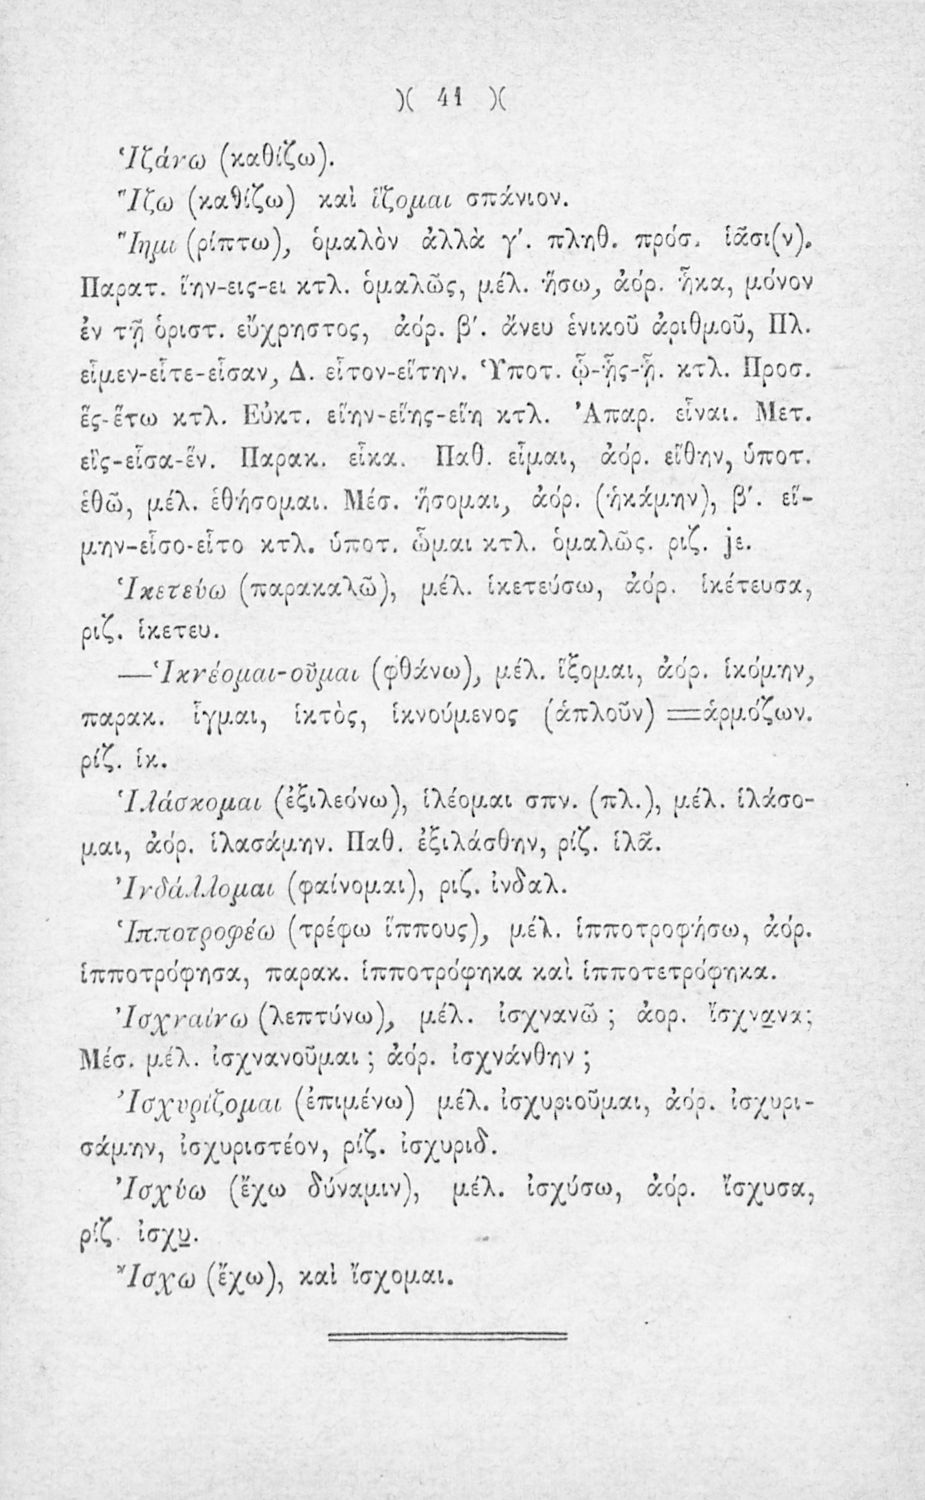 )( 41 )(
Ἱζάνω (καθίζω).
Ἵζω (καθίζω) καὶ ἵζομαι σπάνιον.
Ἵημι (ρίπτω), ὁμαλὸν ἀλλὰ γʹ. πληθ. πρόσ. ἱᾶσι(ν).
Παρατ. ἵην-εις-ει κτλ. ὁμαλῶς, μέλ. ἥσω, ἀόρ. ἧκα, μόνον
ἐν τῇ ὁριστ. εὔχρηστος, ἀόρ. βʹ. ἄνευ ἑνικοῦ ἀριθμοῦ, Πλ.
εἷμεν-εἷτε-εἷσαν, Δ. εἷτον-εἵτην. Ὑποτ. ὧ-ᾗς-ᾗ. κτλ. Προσ.
ἕς-ἕτω κτλ. Εὐκτ. εἵην-εἵης-εἵη κτλ. Ἀπαρ. εἷναι. Μετ.
εἵς-εἷσα-ἕν. Παρακ. εἷκα. Παθ. εἷμαι, ἀόρ. εἵθην, ὑποτ.
ἑθῶ, μέλ. ἑθήσομαι. Μέσ. ἥσομαι, ἀόρ. (ἡκάμην), βʹ. εἵ-
μην-εἷσο-εἷτο κτλ. ὑποτ. ὧμαι κτλ. ὁμαλῶς. ριζ. jε.
Ἱκετεύω (παρακαλῶ), μέλ. ἱκετεύσω, ἀόρ. ἱκέτευσα,
ριζ. ἱκετευ.
—Ἱκνέομαι-οῦμαι (φθάνω), μέλ. ἵξομαι, ἀόρ. ἱκόμην,
παρακ. ἷγμαι, ἱκτὸς, ἱκνούμενος (ἁπλοῦν) =ἁρμόζων.
ρίζ. ἱκ.
Ἱλάσκομαι (ἐξιλεόνω), ἱλέομαι σπν. (πλ.), μέλ. ἱλάσο-
μαι, ἀόρ. ἱλασάμην. Παθ. ἐξιλάσθην, ρίζ. ἱλᾶ.
Ἰνδάλλομαι (φαίνομαι), ριζ. ἰνδαλ.
Ἱπποτροφέω (τρέφω ἵππους), μέλ. ἱπποτροφήσω, ἀόρ.
ἱπποτρόφησα, παρακ. ἱπποτρόφηκα καὶ ἱπποτετρόφηκα.
Ἰσχναίνω (λεπτύνω), μέλ. ἰσχνανῶ ; ἀορ. ἴσχνανα;
Μέσ. μέλ. ἰσχνανοῦμαι ; ἀόρ. ἰσχνάνθην ;
Ἰσχυρίζομαι (ἐπιμένω) μέλ. ἰσχυριοῦμαι, ἀόρ. ἰσχυρι-
σάμην, ἰσχυριστέον, ρίζ. ἰσχυριδ.
Ἰσχύω (ἔχω δύναμιν), μέλ. ἰσχύσω, ἀόρ. ἴσχυσα,
ρίζ. ἰσχυ.
Ἴσχω (ἔχω), καὶ ἴσχομαι.